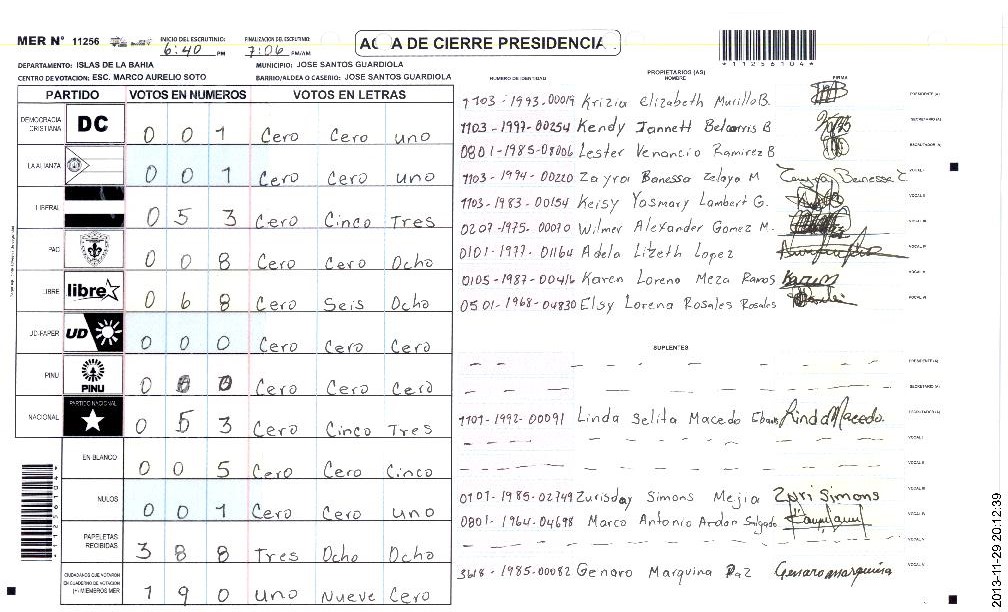 MER N° 11256
INICIO DEL ESCRUTINIO: 6:40 PM
FINALIZACION DEL ESCRUTINIO: 7:06 PM/AM
ACTA DE CIERRE PRESIDENCIAL
DEPARTAMENTO: ISLAS DE LA BAHIA
MUNICIPIO: JOSE SANTOS GUARDIOLA
CENTRO DE VOTACION: ESC. MARCO AURELIO SOTO
BARRIO/ALDEA O CASERIO: JOSE SANTOS GUARDIOLA
*11256104*
PARTIDO VOTOS EN NUMEROS VOTOS EN LETRAS
DEMOCRACIA CRISTIANA DC 0 0 1 Cero Cero uno
LA ALIANZA 0 0 1 Cero Cero uno
LIBERAL 0 5 3 Cero Cinco Tres
PAC 0 0 8 Cero Cero Ocho
LIBRE libre 0 6 8 Cero Seis Ocho
UD-FAPER UD 0 0 0 Cero Cero Cero
PINU PINU 0 0 0 Cero Cero Cero
NACIONAL PARTIDO NACIONAL 0 5 3 Cero Cinco Tres
EN BLANCO 0 0 5 Cero Cero Cinco
NULOS 0 0 1 Cero Cero uno
PAPELETAS RECIBIDAS 3 8 8 Tres Ocho Ocho
CIUDADANOS QUE VOTARON EN CUADERNO DE VOTACION (+) MIEMBROS MER 1 9 0 uno Nueve Cero
PROPIETARIOS (AS)
NUMERO DE IDENTIDAD NOMBRE FIRMA
1103-1993-00019 Krizia Elizabeth Murillo B. PRESIDENTE (A)
1103-1997-00254 Kendy Jannett Belcarris B SECRETARIO (A)
0801-1985-08006 Lester Venancio Ramirez B ESCRUTADOR (A)
1103-1994-00220 Zayra Banessa Zelaya M VOCAL I
1103-1983-00154 Keisy Yosmary Lambert G. VOCAL II
0207-1975-00070 Wilmer Alexander Gomez M. VOCAL III
0101-1977-01164 Adela Lizeth Lopez VOCAL IV
0105-1987-00416 Karen Loreno Meza Ramos Karen VOCAL V
0501-1968-04830 Elsy Lorena Rosales Rosales VOCAL VI
SUPLENTES
PRESIDENTE (A)
SECRETARIO (A)
1101-1992-00091 Linda Selita Macedo Ebanks Linda Macedo. ESCRUTADOR (A)
VOCAL I
VOCAL II
0101-1985-02749 Zurisday Simons Mejia Zuri Simons VOCAL III
0801-1964-04698 Marco Antonio Ardon Salgado VOCAL IV
VOCAL V
3618-1985-00082 Genaro Marquina Paz Genaro marquina VOCAL VI
2013-11-29 20:12:39